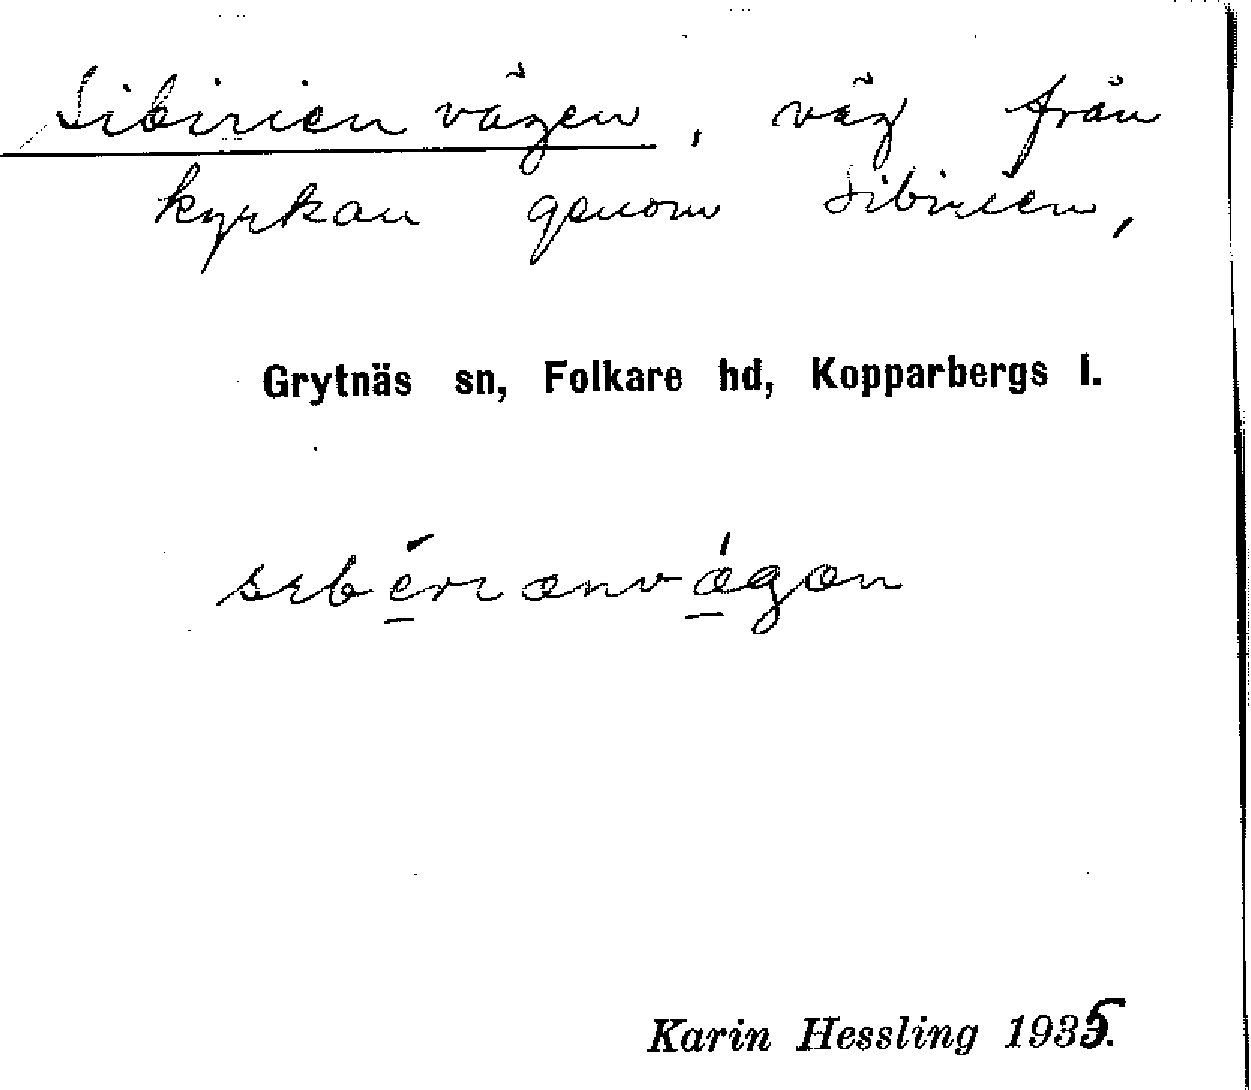 Sibirienvägen, väg från
kyrkan genom Sibirien,
Grytnäs sn, Folkare hd, Kopparbergs l.
Karin Hessling 1935.